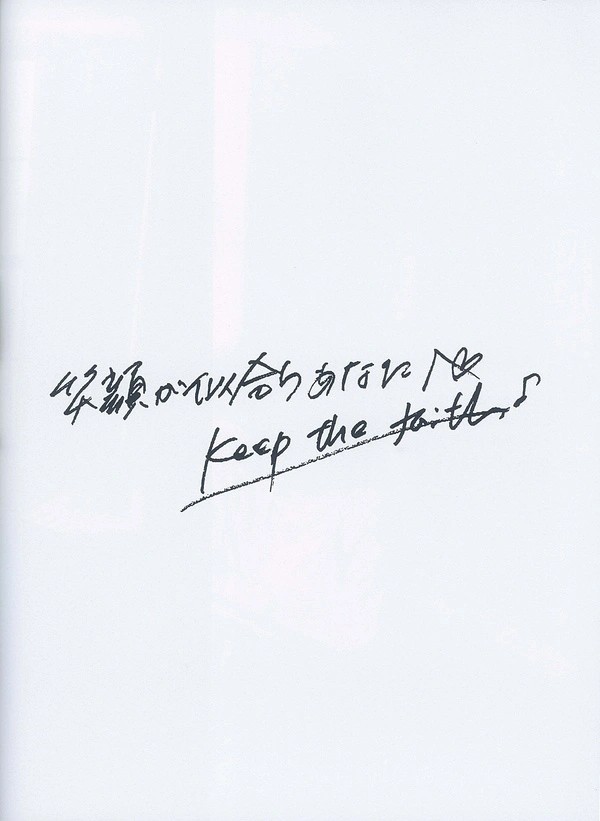 笑顔が似合うあなたに♡
Keep the faith♪